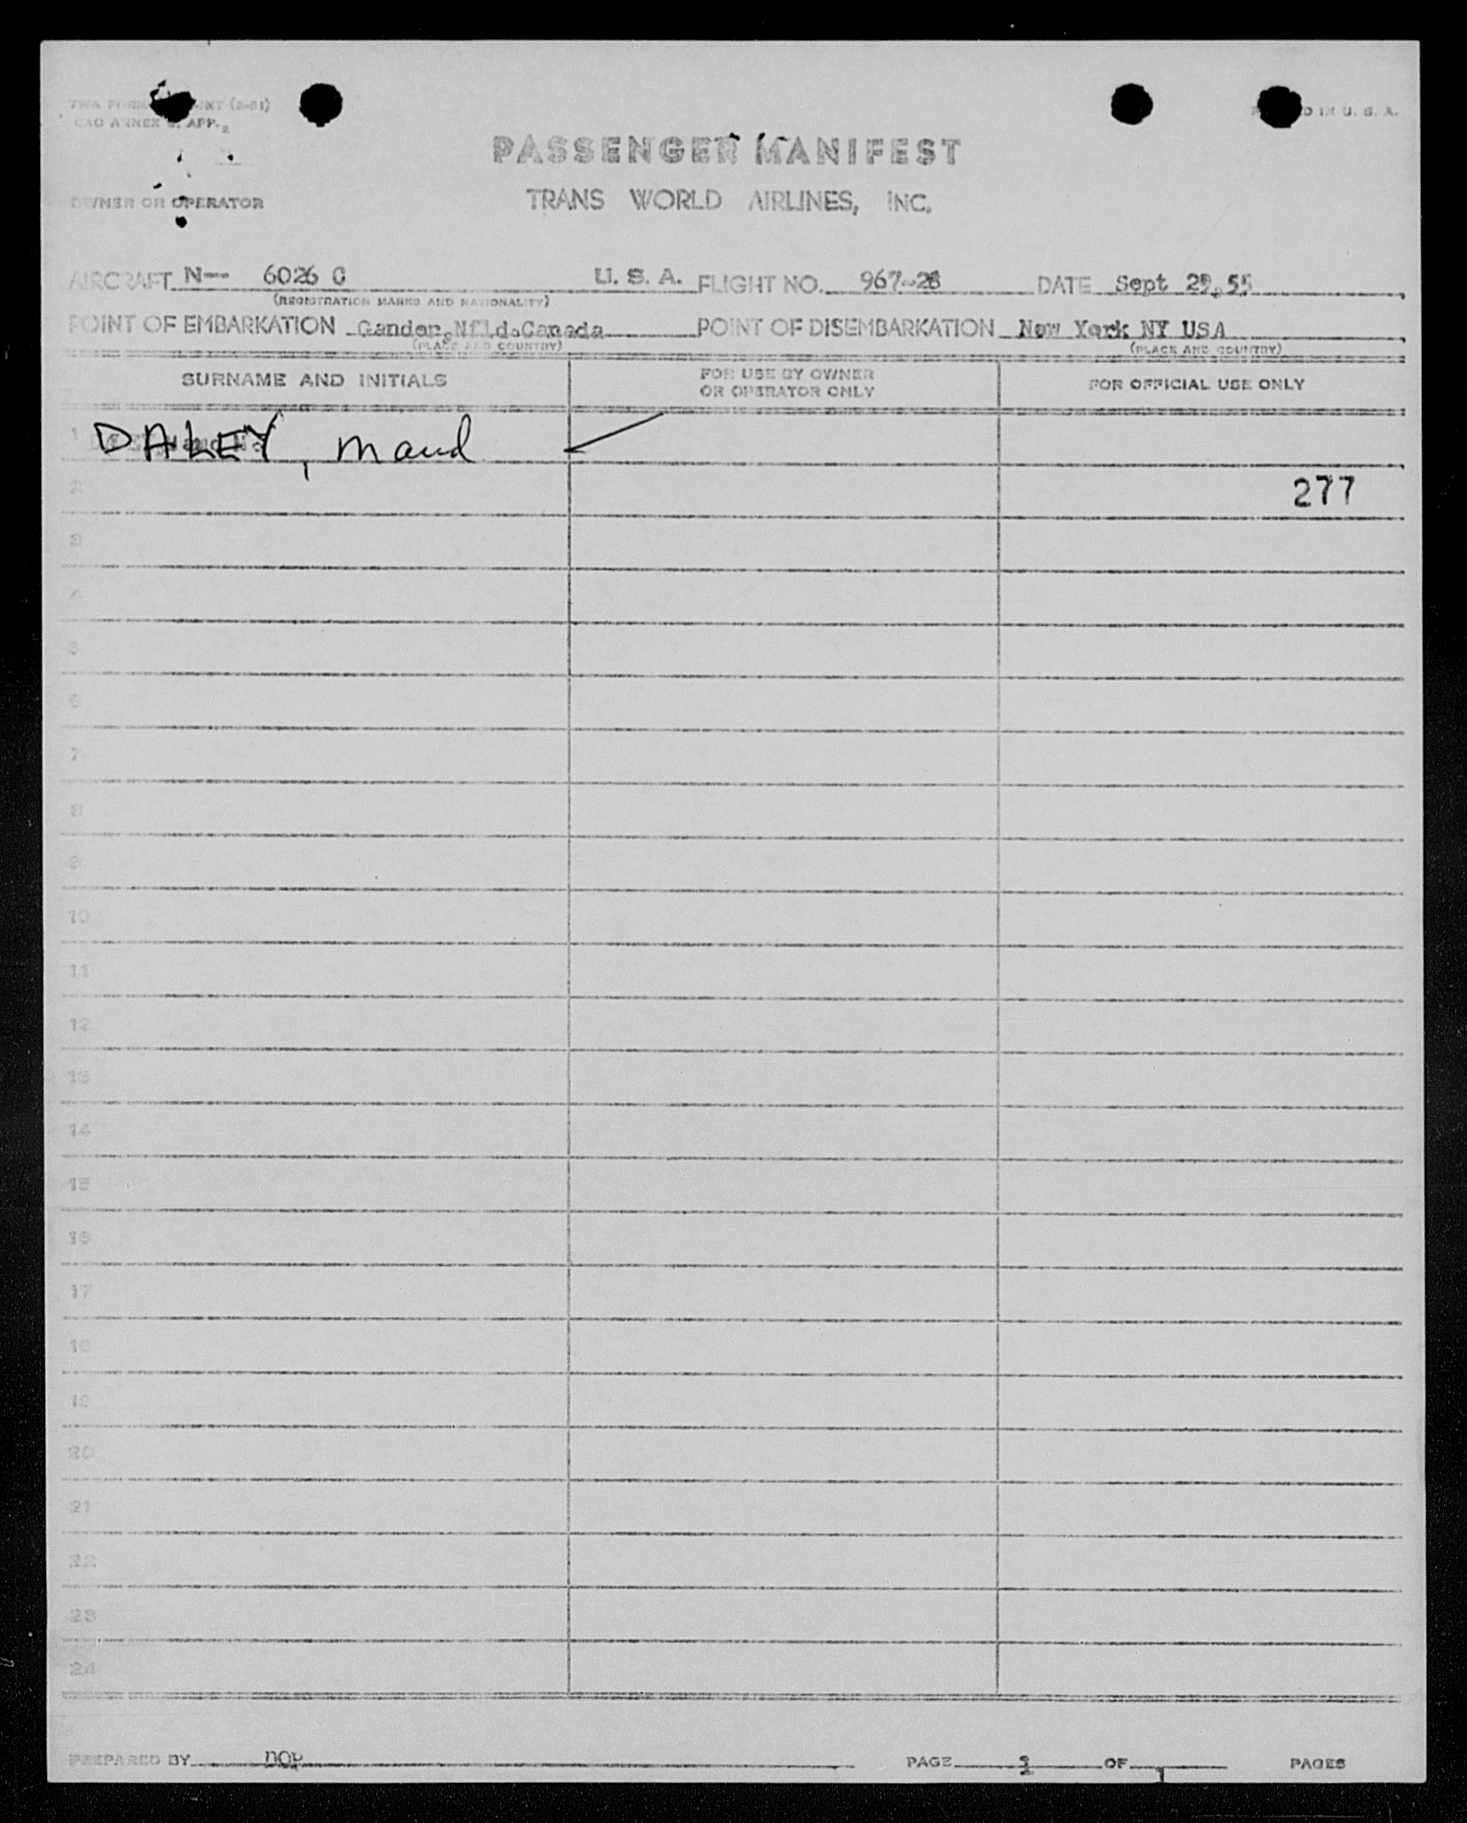 TWA FORM INT (2-51)
ICAO ANNEX 9, APP. 2
PRINTED IN U. S. A.
PASSENGER MANIFEST
TRANS WORLD AIRLINES, INC.
OWNER OR OPERATOR
AIRCRAFT N-- 6026 C U. S. A. FLIGHT NO. 967-28 DATE Sept 29, 55
(REGISTRATION MARKS AND NATIONALITY)
POINT OF EMBARKATION Gander, Nfld. Canada POINT OF DISEMBARKATION New York NY USA
(PLACE AND COUNTRY) (PLACE AND COUNTRY)
SURNAME AND INITIALS FOR USE BY OWNER OR OPERATOR ONLY FOR OFFICIAL USE ONLY
1 DALEY, Maud
2 277
3
4
5
6
7
8
9
10
11
12
13
14
15
16
17
18
19
20
21
22
23
24
PREPARED BY PAGE 1 OF 1 PAGES